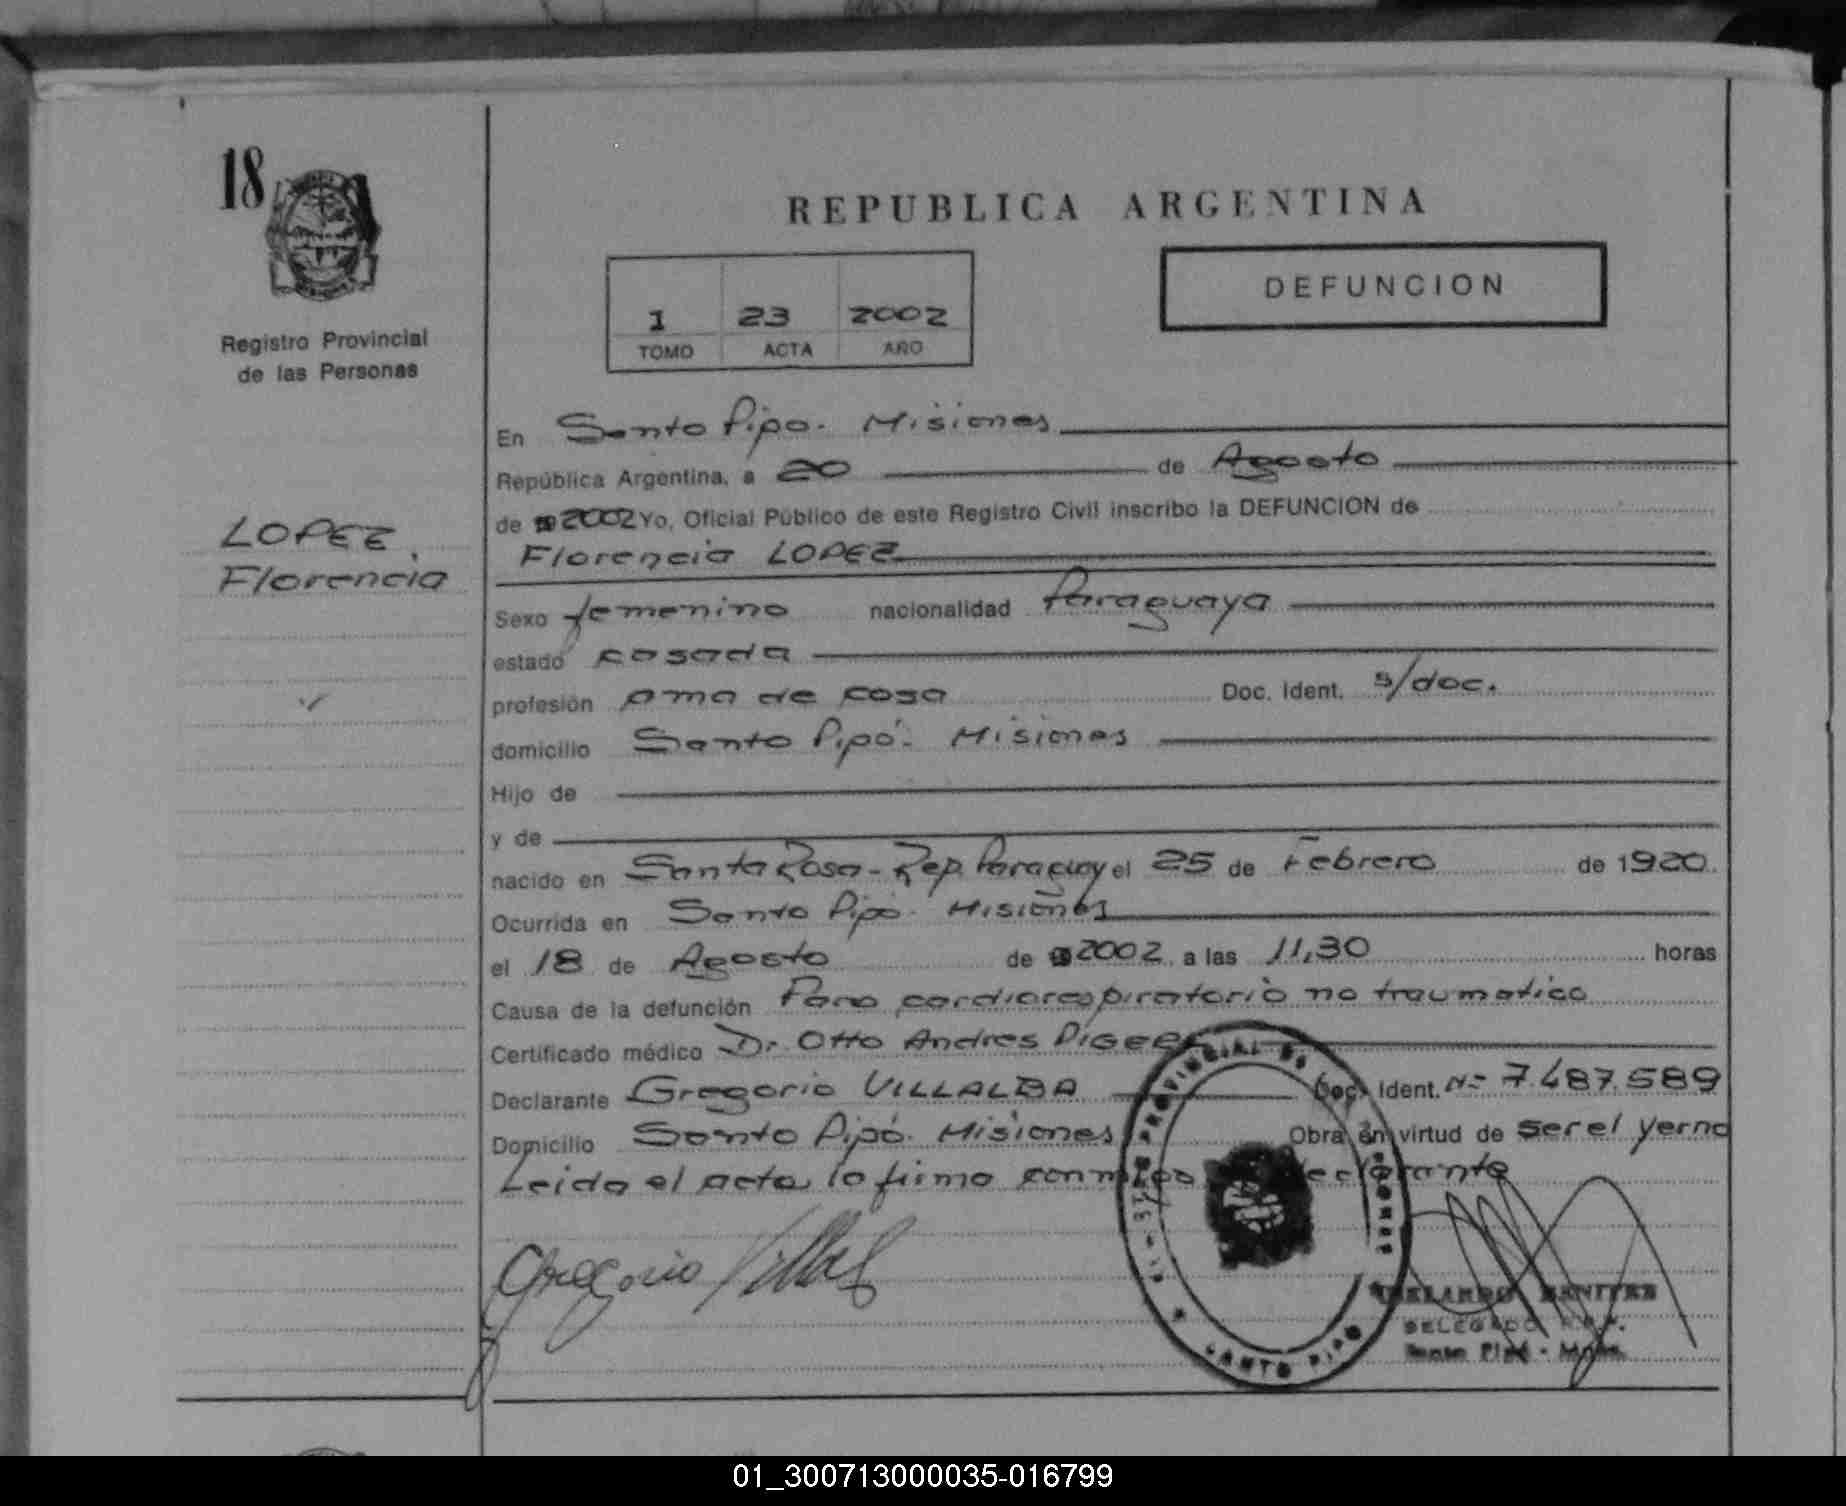 18
REPUBLICA ARGENTINA
DEFUNCION
1 23 2002
TOMO ACTA AÑO
Registro Provincial
de las Personas
LOPEZ,
Florencia
En Santo Pipo. Misiones
República Argentina, a 20 de Agosto
de 2002 Yo, Oficial Público de este Registro Civil inscribo la DEFUNCION de
Florencia LOPEZ
Sexo femenino nacionalidad Paraguaya
estado casada
profesión ama de casa Doc. Ident. s/doc.
domicilio Santo Pipó. Misiones
Hijo de
y de
nacido en Santa Rosa - Rep. Paraguay el 25 de Febrero de 1920.
Ocurrida en Santo Pipó. Misiones
el 18 de Agosto de 2002 a las 11,30 horas
Causa de la defunción Paro cardiorespiratorio no traumatico
Certificado médico Dr. Otto Andres
Declarante Gregorio VILLALBA Doc. Ident. Nº 7.487.589
Domicilio Santo Pipó. Misiones Obra en virtud de ser el yerno
Leida el acta, la firma conmigo declarante
Gregorio
PROVINCIAL DE
SANTO PIPO
BENITEZ
DELEGADO R.P.P.
Santo Pipó - Mnes.
01_300713000035-016799